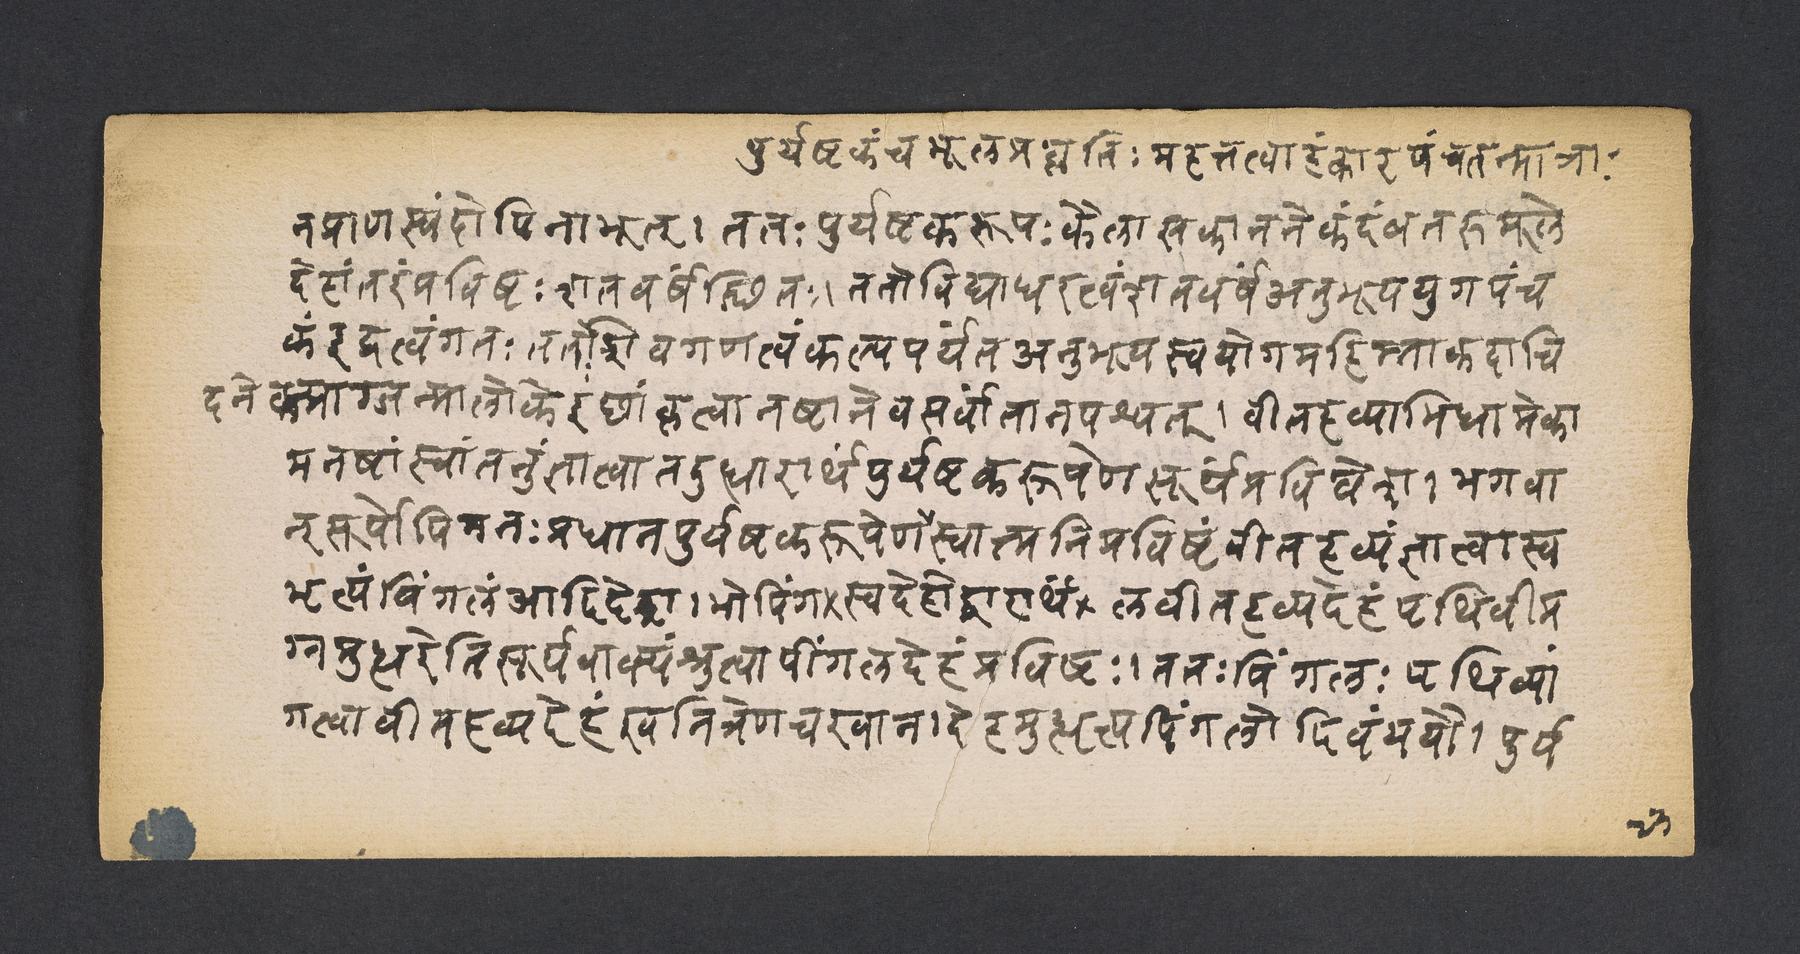 पुर्यष्टकंच मूलप्रकृतिः महत्तत्वाहंकारपंचतन्मात्राः
नप्राणस्पंदोपिनाभूत्। ततः पुर्यष्टकरूपः कैलासकाननेकंदंबतरुमूले
देहांतरंप्रविष्टः शतवर्षंस्थितः। ततोविद्याधरत्वंशतवर्षंअनुभूययुगपंच
कंइंद्रत्वंगतः ततःशिवगणत्वंकल्पपर्यंतअनुभूयस्वयोगमहिम्नाकदाचि
दनेकप्राग्जन्मालोकेइछांकृत्वानष्टानेवसर्वांतानपश्यत्। वीतहव्याभिधामेका
मनष्टांस्वांतनुंज्ञात्वातदुद्धारार्थंपुर्यष्टकरूपेणसूर्यंप्रविवेश। भगवा
न्सूर्योपिमनःप्रधानपुर्यष्टकरूपेणस्वात्मनिप्रविष्टंवीतहव्यंज्ञात्वास्व
भृत्यंपिंगलंआदिदेश। भोपिंग×स्वदेहोद्धारार्थं× लवीतहव्यदेहंपृथिवीम
ग्नमुद्धरेतिसूर्यवाक्यंश्रुत्वापींगलदेहंप्रविष्टः। ततःपिंगलः पृथिव्यां
गत्वावीतहव्यदेहंखनित्रेणचखान। देहमुद्धृत्यपिंगलोदिवंययौ। पुर्य